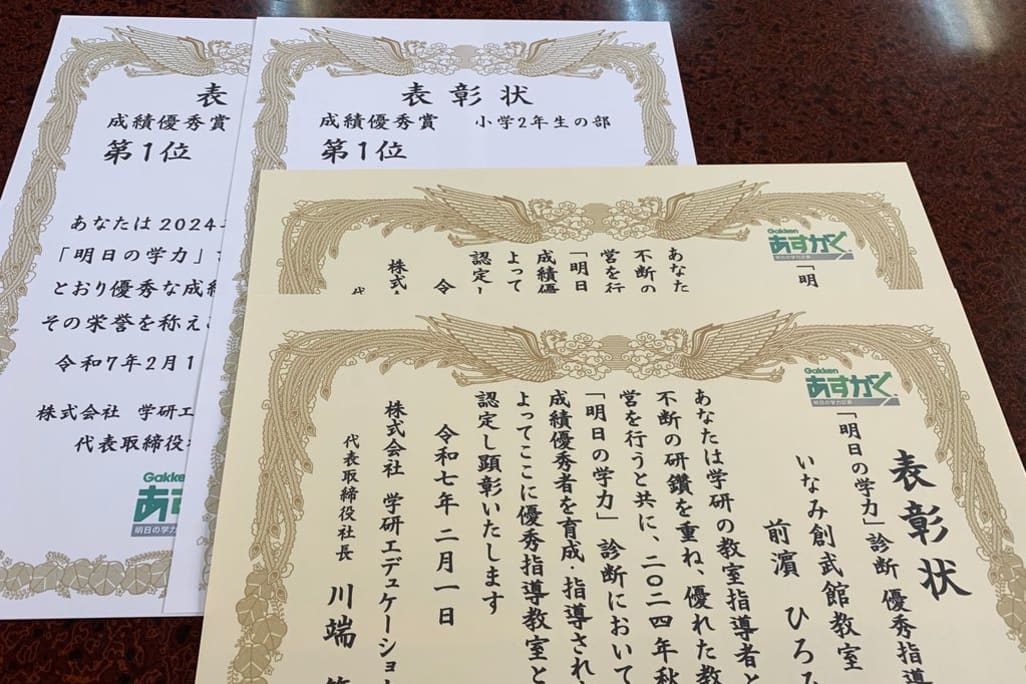 表
成績優秀賞
第1位
あなたは2024
「明日の学力」
とおり優秀な成績
その栄誉を称え
令和7年2月1
株式会社 学研エ
代表取締役
Gakke
あす
明日の学力
表彰状
成績優秀賞 小学2年生の部
第1位
Gakken
あすがく
明日の学力診断
「明
あなた
不断の
営を行
「明日
成績優
よって
認定し
令
株式会
Gakken
あすがく
明日の学力診断
表彰状
「明日の学力」診断 優秀指導
いなみ創武館教室
前濵 ひろみ
あなたは学研の教室指導者と
不断の研鑽を重ね、優れた教
営を行うと共に、二〇二四年秋
「明日の学力」診断において
成績優秀者を育成・指導され
よってここに優秀指導教室と
認定し顕彰いたします
令和七年 二月一日
株式会社 学研エデュケーショ
代表取締役社長 川端